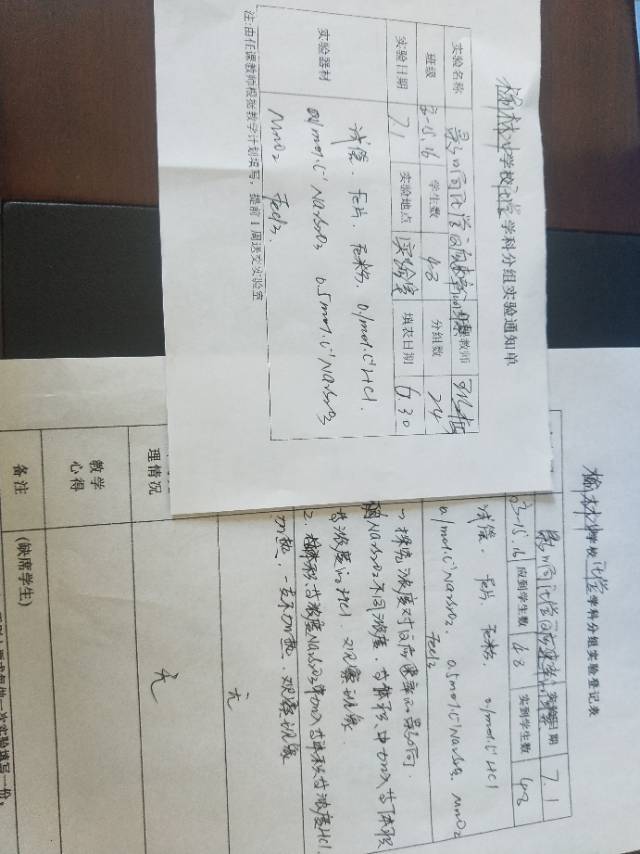 榆林中学校化学学科分组实验通知单
实验名称 影响化学反应速率的因素 教师
班级 高一15.16 学生数 48 分组数 24
实验日期 7.1 实验地点 实验室 填表日期 6.30
实验器材
试管、Fe片、Fe粉、0.1mol·L⁻¹HCl.
0.1mol·L⁻¹Na₂S₂O₃ 0.5mol·L⁻¹Na₂S₂O₃
MnO₂ FeCl₃.
注:由任课教师根据教学计划填写,提前1周送交实验室
学校化学学科分组实验登记表
影响化学反应速率 日期 7.1
15.16 应到学生数 48 实到学生数 48
试管、Fe片、Fe粉、0.1mol·L⁻¹HCl
0.1mol·L⁻¹Na₂S₂O₃、0.5mol·L⁻¹Na₂S₂O₃、MnO₂
FeCl₃
探究浓度对反应速率的影响.
Na₂S₂O₃不同浓度、等体积中加入等体积
等浓度的HCl,观察现象.
2. 等浓度Na₂S₂O₃中加入等体积等浓度HCl.
加热,一支不加热,观察现象
无
理情况 无
教学
心得
备注 (缺席学生)